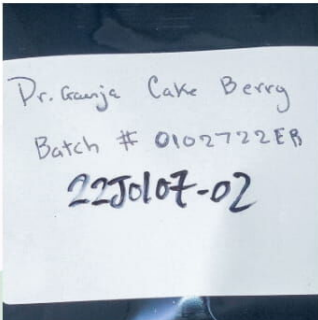 Dr. Ganja Cake Berry
Batch # 0102722EB
22J0107-02